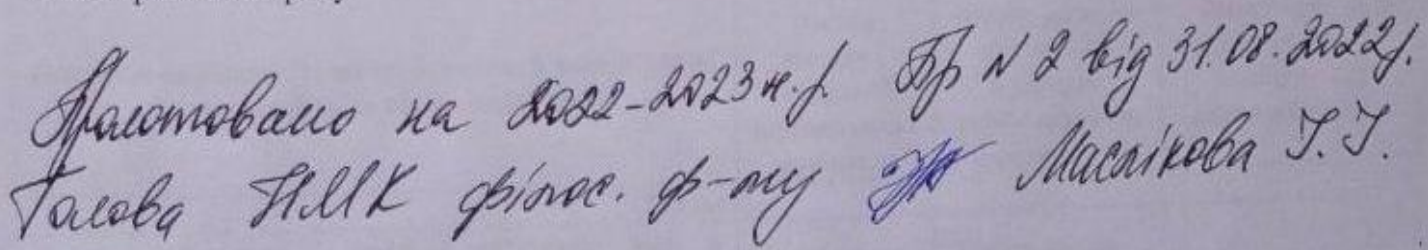 Пролотовано на 2022-2023 н.р. Пр N 2 від 31.08.2022р.
Голова НМК філос. ф-ту Маслікова І.І.